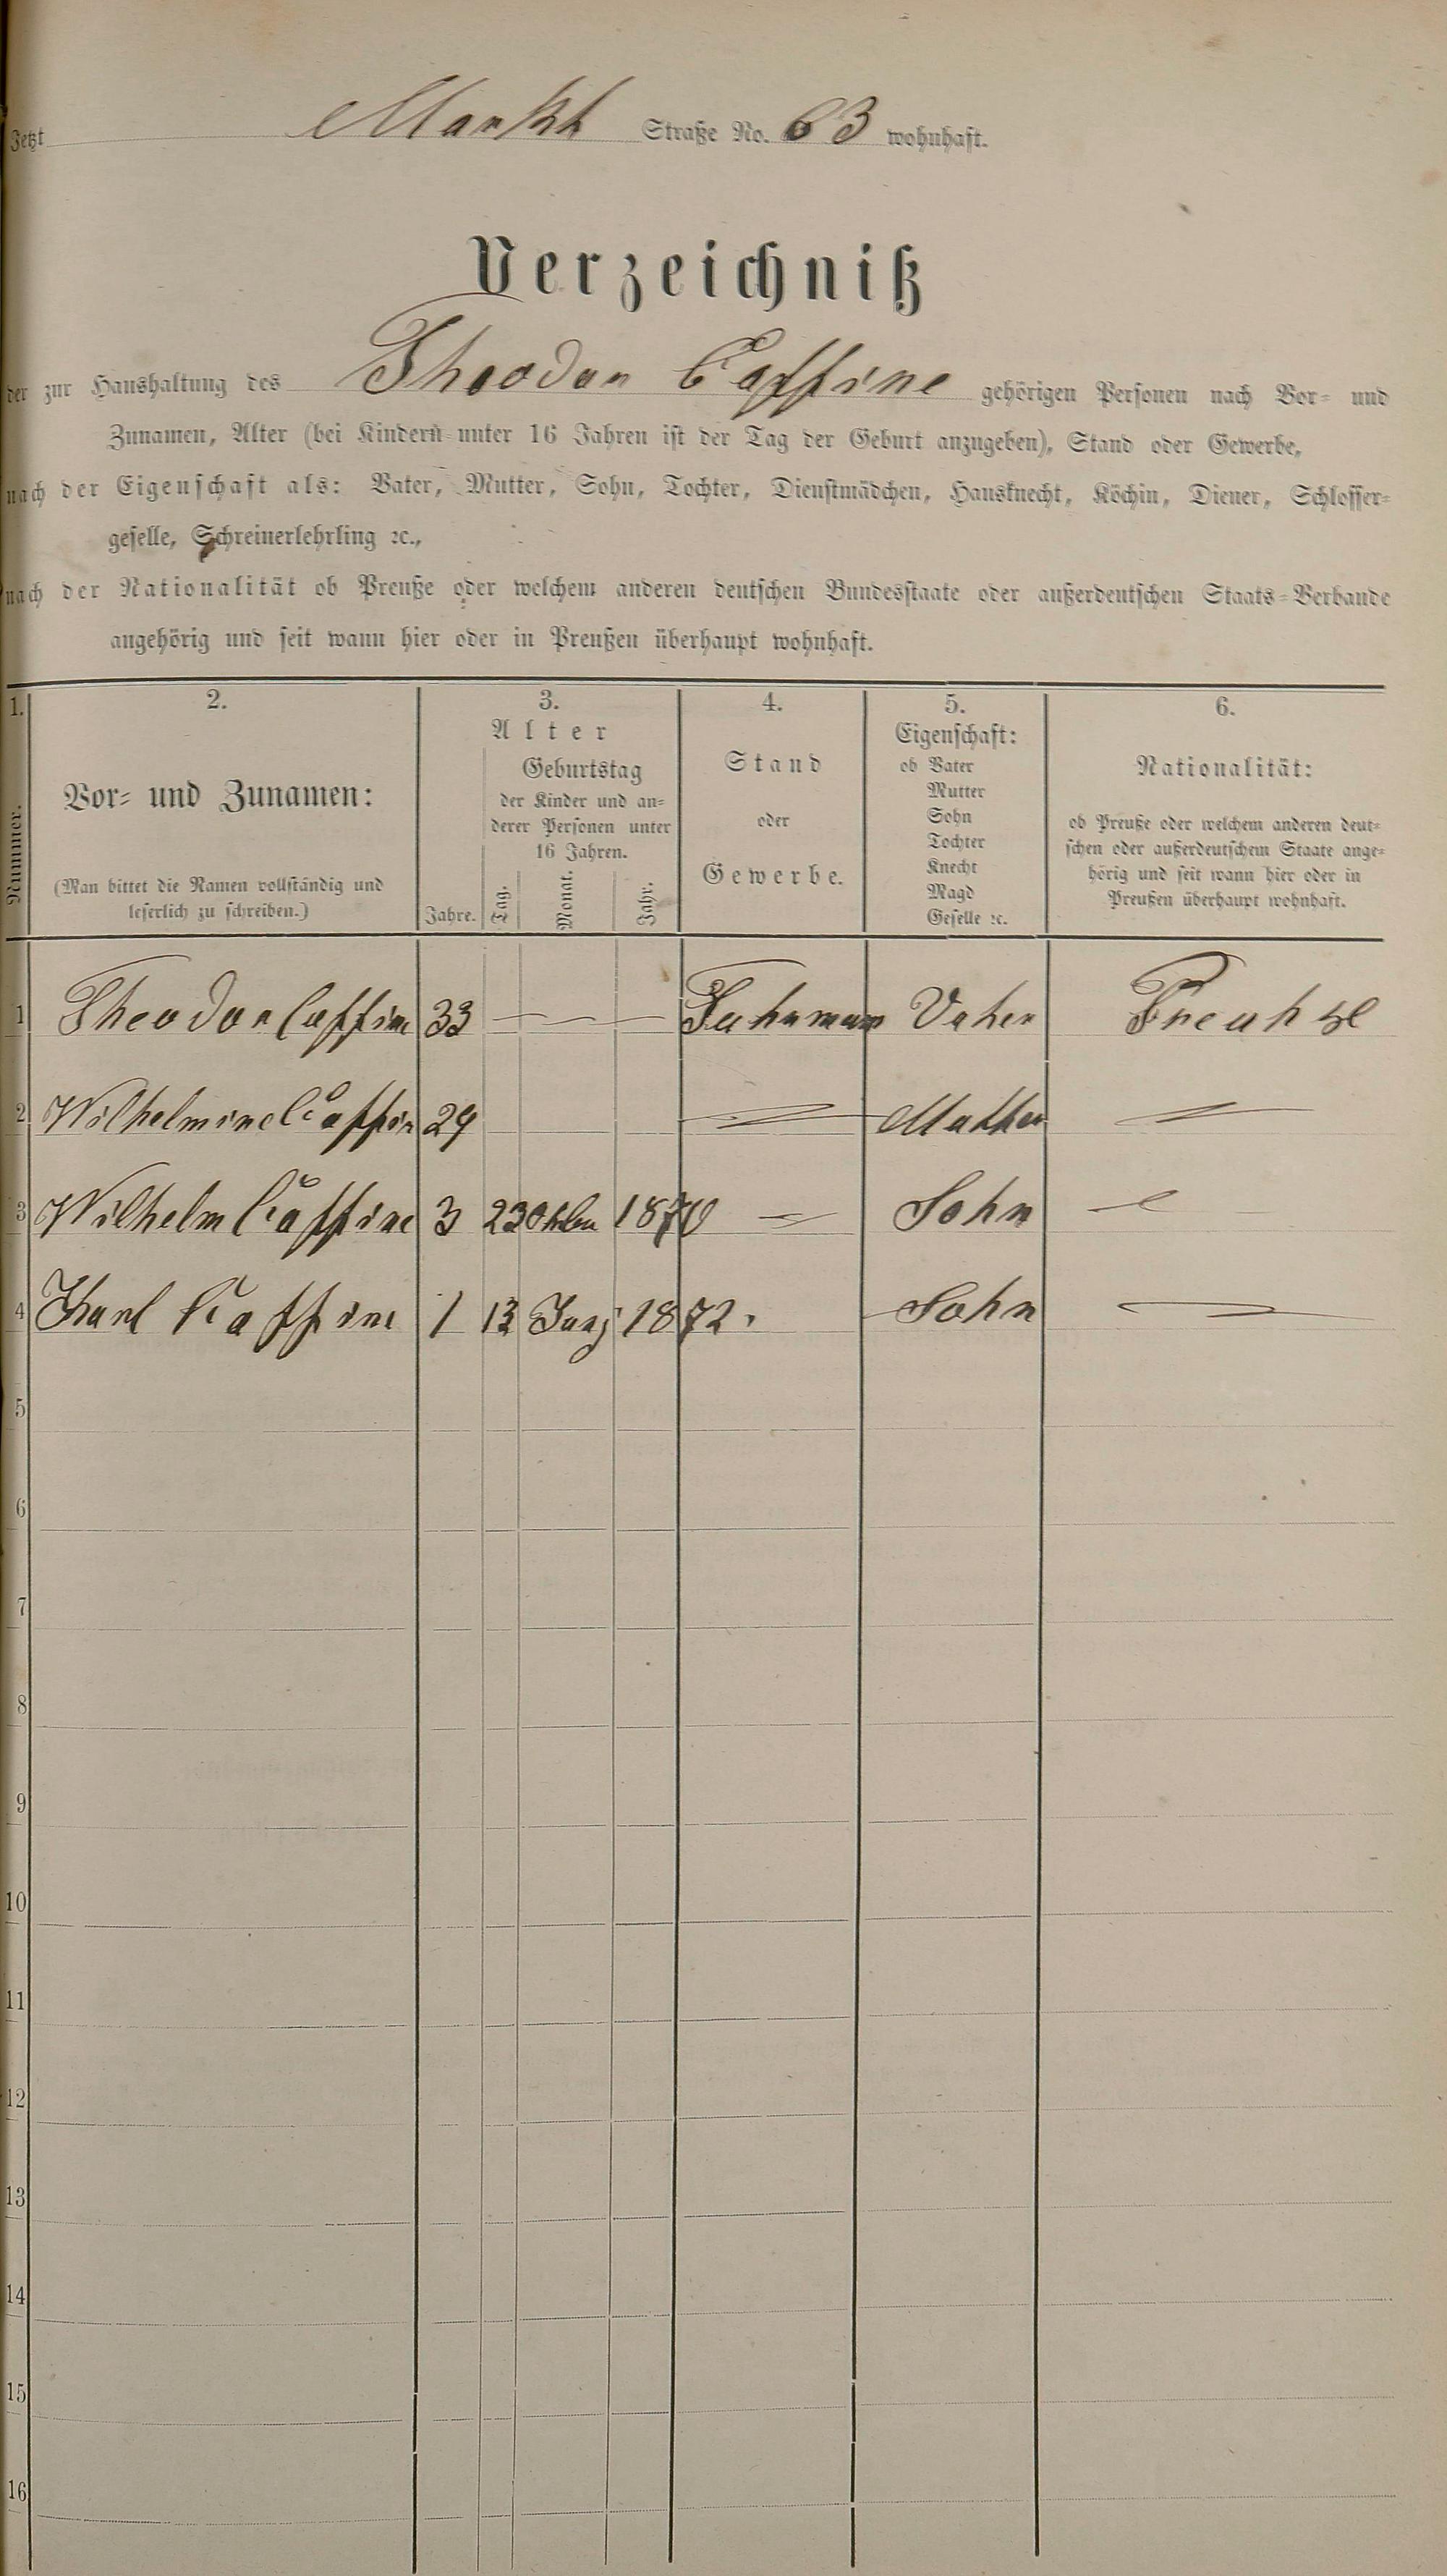 Jetzt Markt Straße No. 63 wohnhaft.
Verzeichniß
der zur Haushaltung des Theodor Caffine gehörigen Personen nach Vor- und
Zunamen, Alter (bei Kindern unter 16 Jahren ist der Tag der Geburt anzugeben), Stand oder Gewerbe,
nach der Eigenschaft als: Vater, Mutter, Sohn, Tochter, Dienstmädchen, Hausknecht, Köchin, Diener, Schlosser-
geselle, Schreinerlehrling ꝛc.,
nach der Nationalität ob Preuße oder welchem anderen deutschen Bundesstaate oder außerdeutschen Staats-Verbande
angehörig und seit wann hier oder in Preußen überhaupt wohnhaft.
1.
Nummer.
2.
Vor- und Zunamen:
(Man bittet die Namen vollständig und
leserlich zu schreiben.)
3.
Alter
Jahre.
Geburtstag
der Kinder und an-
derer Personen unter
16 Jahren.
Tag. Monat. Jahr.
4.
Stand
oder
Gewerbe.
5.
Eigenschaft:
ob Vater
Mutter
Sohn
Tochter
Knecht
Magd
Geselle ꝛc.
6.
Nationalität:
ob Preuße oder welchem anderen deut-
schen oder außerdeutschem Staate ange-
hörig und seit wann hier oder in
Preußen überhaupt wohnhaft.
1 Theodor Caffine 33 — — — Fuhrmann Vater
2 Wilhelmine Caffin 29 Mutter
3 Wilhelm Caffine 3 23 1870 Sohn
4 Karl Caffine 1 13 Juni 1872. Sohn
5
6
7
8
9
10
11
12
13
14
15
16